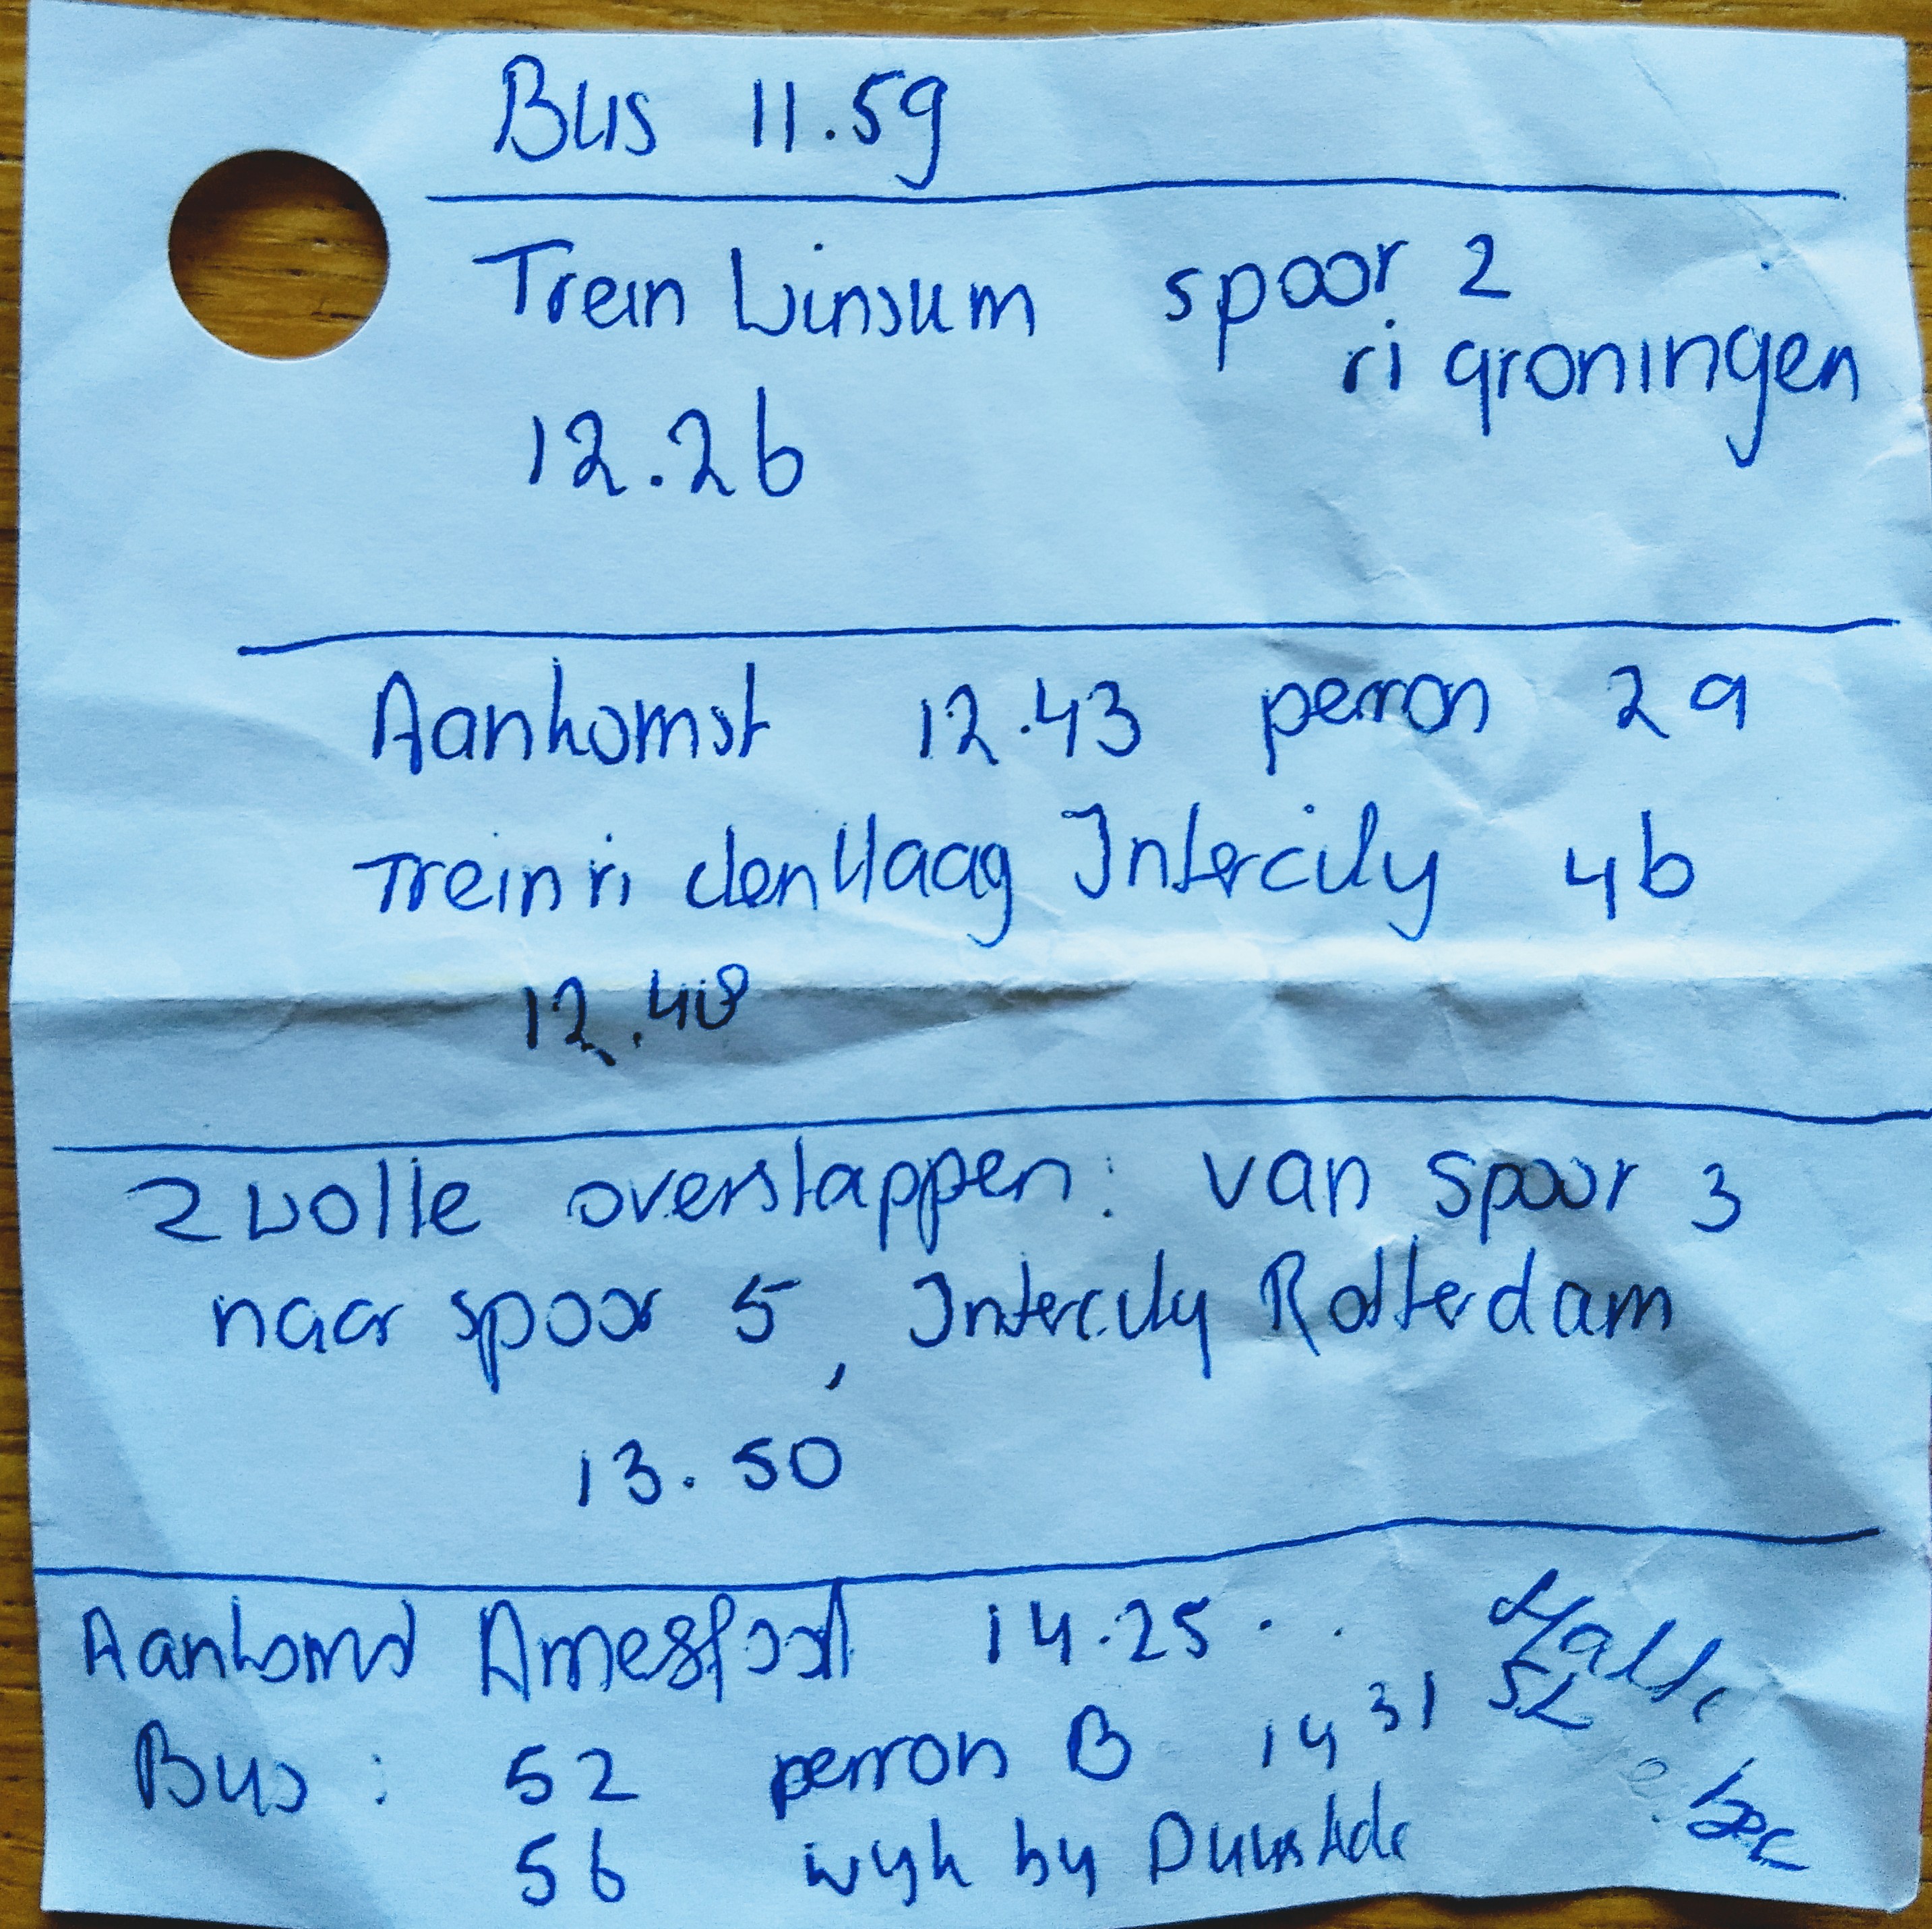 Bus 11.59
Trein Winsum spoor 2
ri groningen
12.26
Aankomst 12.43 perron 2a
Trein ri den Haag Intercity 4b
12.48
Zwolle overstappen: van spoor 3
naar spoor 5, Intercity Rotterdam
13.50
Aankomst Amersfoort 14.25
Bus: 52 perron B 14 31
56 wyk by Duurstede
52